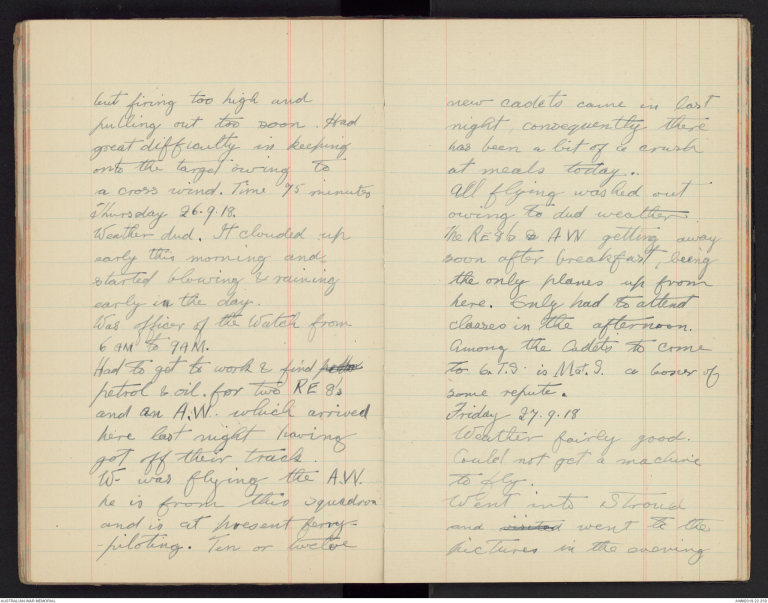 but firing too high and
pulling out too soon. Had
great difficulty in keeping
onto the target owing to
a cross wind. Time 75 minutes
Thursday 26.9.18.
Weather dud. It clouded up
early this morning and
started blowing & raining
early in the day.
Was officer of the Watch from
6 AM to 9AM.
Had to get to work & find
petrol & oil for two RE 8's
and an A.W. which arrived
here last night having
got off their track.
W- was flying the A.W.
he is from this squadron
and is at present ferry-
-piloting. Ten or twelve
new cadets came in last
night, consequently there
has been a bit of a crush
at meals today.
All flying washed out
owing to dud weather
The RE8's & AW getting away
soon after breakfast, being
the only planes up from
here. Only had to attend
classes in the afternoon.
Among the Cadets to come
to 6.T.S. is a boxer of
some repute.
Friday 27.9.18
Weather fairly good.
Could not get a machine
to fly.
Went into Stroud
and visited went to the
pictures in the evening
AUSTRALIAN WAR MEMORIAL